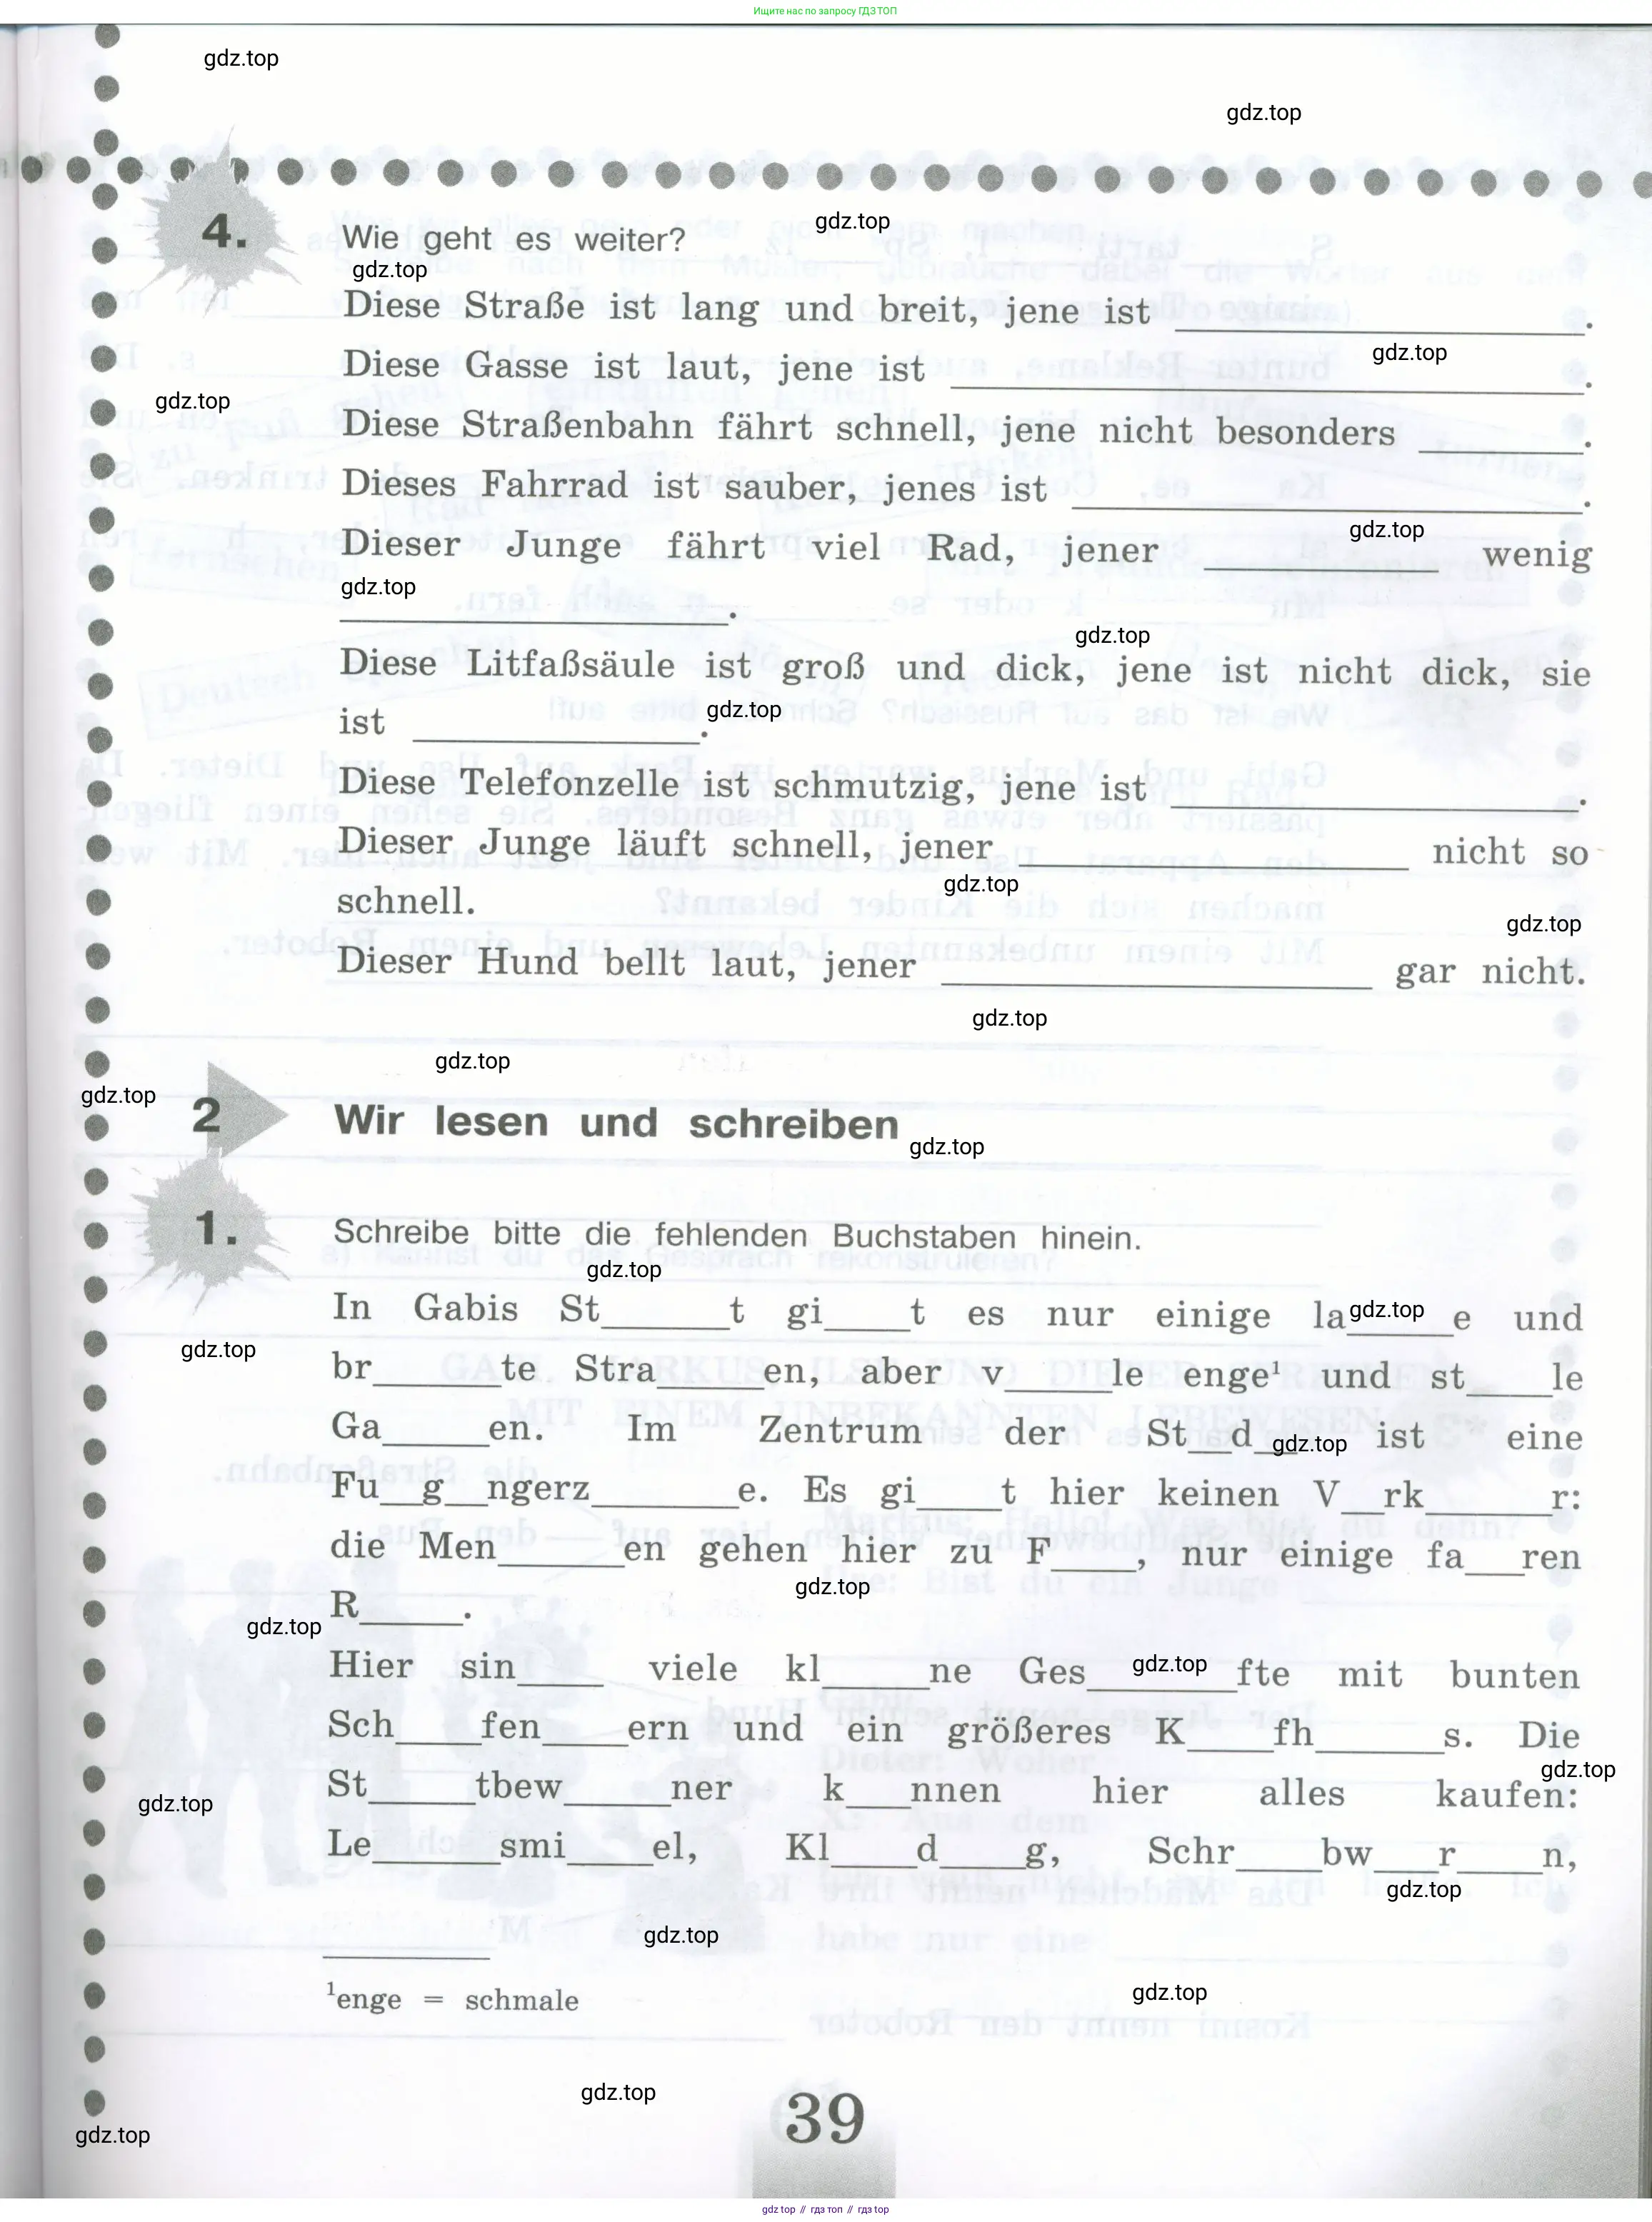 Ищите нас по запросу ГДЗ ТОП
gdz.top
gdz.top
gdz.top
4. Wie geht es weiter?
gdz.top
Diese Straße ist lang und breit, jene ist ________.
gdz.top
Diese Gasse ist laut, jene ist ________.
gdz.top
Diese Straßenbahn fährt schnell, jene nicht besonders ________.
Dieses Fahrrad ist sauber, jenes ist ________.
gdz.top
Dieser Junge fährt viel Rad, jener ________ wenig
gdz.top
________.
gdz.top
Diese Litfaßsäule ist groß und dick, jene ist nicht dick, sie
gdz.top
ist ________.
Diese Telefonzelle ist schmutzig, jene ist ________.
Dieser Junge läuft schnell, jener ________ nicht so
gdz.top
schnell.
gdz.top
Dieser Hund bellt laut, jener ________ gar nicht.
gdz.top
gdz.top
gdz.top
2 Wir lesen und schreiben
gdz.top
1. Schreibe bitte die fehlenden Buchstaben hinein.
gdz.top
In Gabis St____t gi____t es nur einige la____e und
gdz.top
gdz.top
br____te Stra____en, aber v____le enge¹ und st____le
Ga____en. Im Zentrum der St__d__ ist eine
gdz.top
Fu__g__ngerz____e. Es gi____t hier keinen V__rk____r:
die Men____en gehen hier zu F____, nur einige fa__ren
gdz.top
R____.
gdz.top
Hier sin____ viele kl____ne Ges____fte mit bunten
gdz.top
Sch____fen____ern und ein größeres K____fh____s. Die
gdz.top
St____tbew____ner k__nnen hier alles kaufen:
gdz.top
Le____smi____el, Kl____d____g, Schr____bw__r____n,
gdz.top
gdz.top
¹enge = schmale
gdz.top
gdz.top
39
gdz.top
gdz.top // гдз топ // гдз top